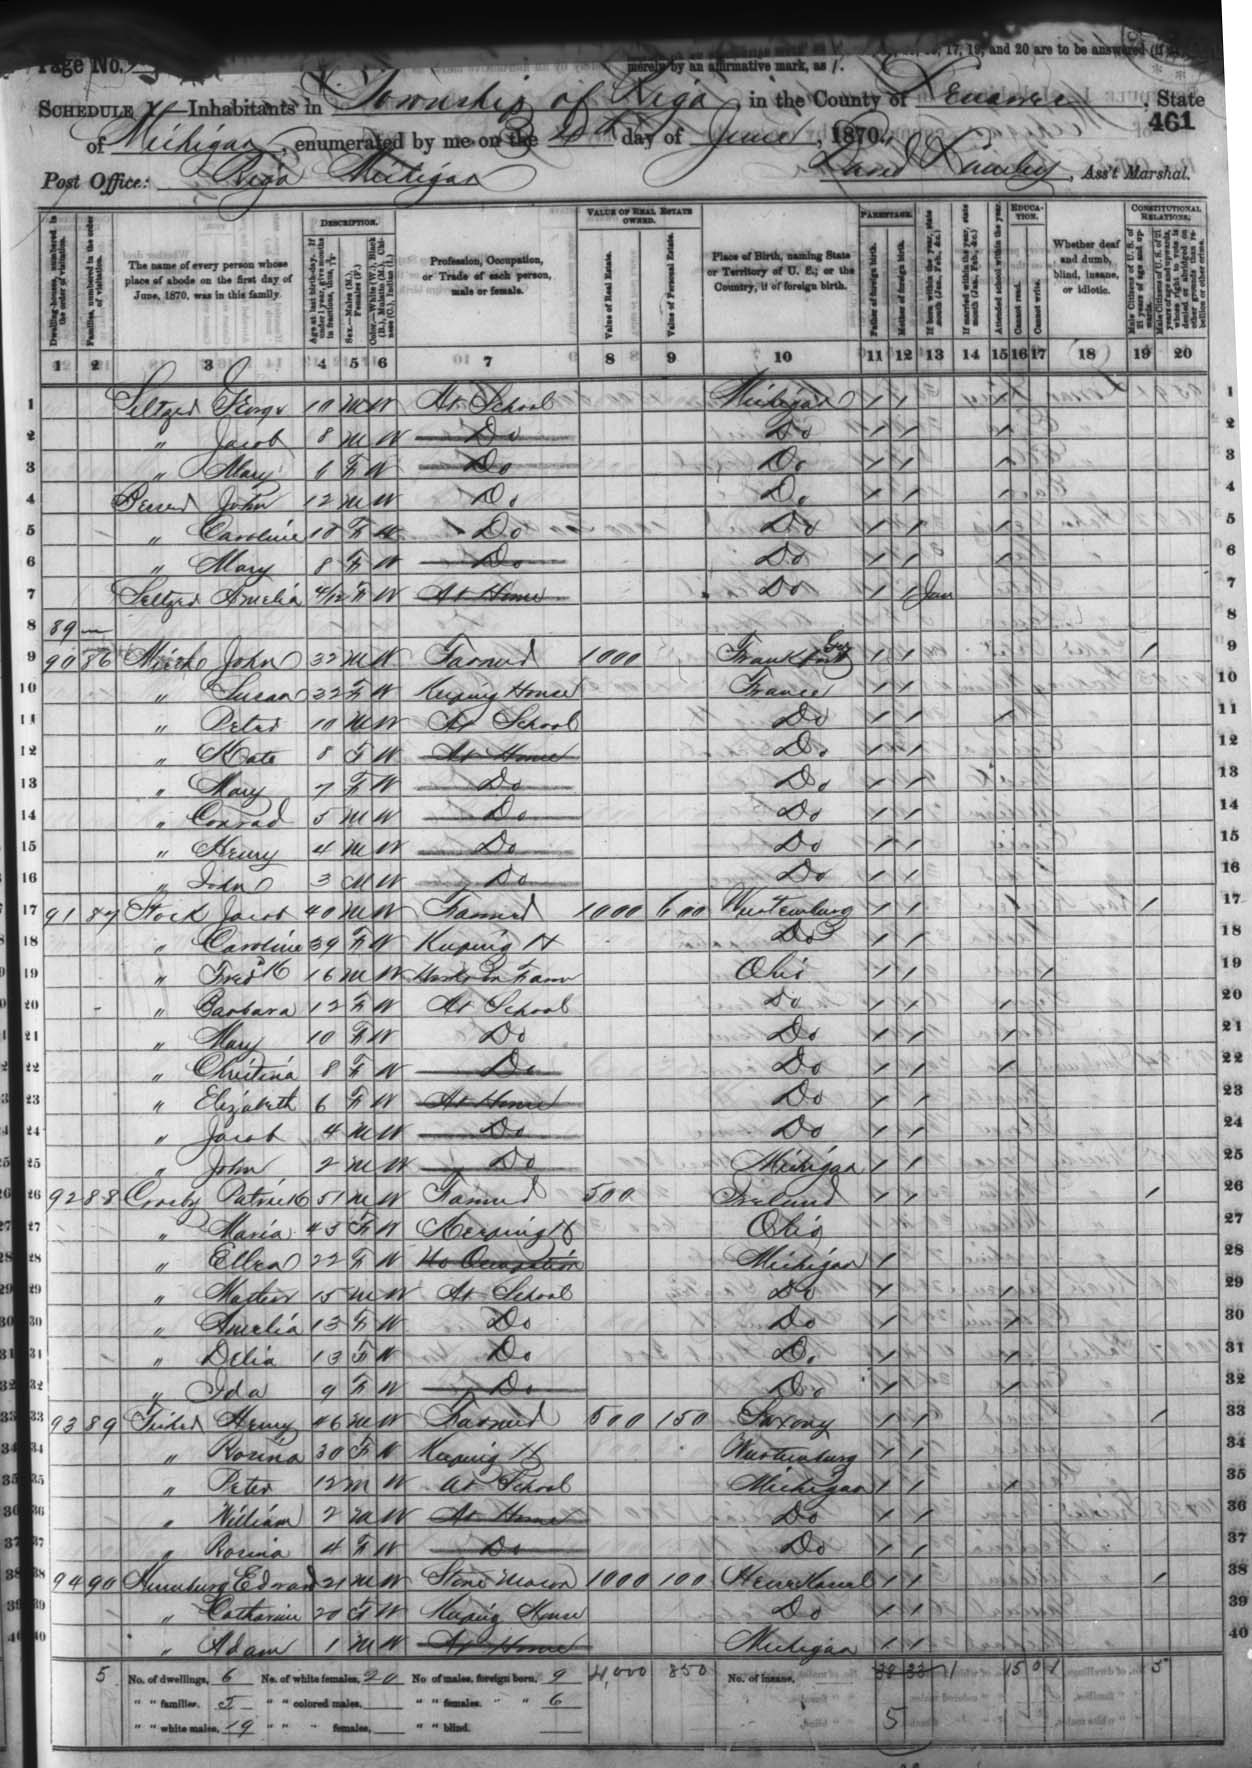 Page No.
17, 19, and 20 are to be answered (if
merely by an affirmative mark, as /.
SCHEDULE 1.—Inhabitants in Township of Riga, in the County of Lenawee, State
461
of Michigan, enumerated by me on the day of June, 1870.
Post Office: Riga Michigan , Ass't Marshal.
Dwelling-houses, numbered in the order of visitation.
Families, numbered in the order of visitation.
The name of every person whose place of abode on the first day of June, 1870, was in this family.
DESCRIPTION.
Age at last birth-day. If under 1 year, give months in fractions, thus, 3/12
Sex.—Males (M.), Females (F.)
Color.—White (W.), Black (B.), Mulatto (M.), Chinese (C.), Indian (I.)
Profession, Occupation, or Trade of each person, male or female.
VALUE OF REAL ESTATE OWNED.
Value of Real Estate.
Value of Personal Estate.
Place of Birth, naming State or Territory of U. S.; or the Country, if of foreign birth.
PARENTAGE.
Father of foreign birth.
Mother of foreign birth.
If born within the year, state month (Jan., Feb., &c.)
If married within the year, state month (Jan., Feb., &c.)
Attended school within the year.
EDUCATION.
Cannot read.
Cannot write.
Whether deaf and dumb, blind, insane, or idiotic.
CONSTITUTIONAL RELATIONS.
Male Citizens of U. S. of 21 years of age and upwards.
Male Citizens of U. S. of 21 years of age and upwards, whose right to vote is denied or abridged on other grounds than rebellion or other crime.
1 2 3 4 5 6 7 8 9 10 11 12 13 14 15 16 17 18 19 20
1 Seltzer George 10 M W At School Michigan / / / 1
2 " Jacob 8 M W Do Do / / / 2
3 " Mary 6 F W Do Do / / / 3
4 John 12 M W Do Do / / / 4
5 " Caroline 10 F W Do Do / / / 5
6 " Mary 8 F W Do Do / / / 6
7 Seltzer Amelia 4/12 F W At Home Do / / Jan 7
8 89 — 8
9 90 86 John 32 M W Farmer 1000 Frankfort Ger / / / 9
10 " Susan 32 F W Keeping House France / / 10
11 " Peter 10 M W At School Do / / / 11
12 " Kate 8 F W At Home Do / / 12
13 " Mary 7 F W Do Do / / 13
14 " Conrad 5 M W Do Do / / 14
15 " Henry 4 M W Do Do / / 15
16 " John 3 M W Do Do / / 16
17 91 87 Stock Jacob 40 M W Farmer 1000 600 Wurtemburg / / / / 17
18 " Caroline 39 F W Keeping H Do / / 18
19 " Fredk 16 M W Works on Farm Ohio / / / 19
20 " Barbara 12 F W At School Do / / / 20
21 " Mary 10 F W Do Do / / / 21
22 " Christina 8 F W Do Do / / / 22
23 " Elizabeth 6 F W At Home Do / / 23
24 " Jacob 4 M W Do Do / / 24
25 " John 2 M W Do Michigan / / 25
26 92 88 Crosby Patrick 51 M W Farmer 500 Ireland / / / 26
27 " Maria 43 F W Keeping H Ohio 27
28 " Ellen 22 F W No Occupation Michigan / 28
29 " 15 M W At School Do / / 29
30 " Amelia 13 F W Do Do / / 30
31 " Delia 13 F W Do Do / / 31
32 " Ida 9 F W Do Do / / 32
33 93 89 Fisher Henry 46 M W Farmer 500 150 Saxony / / / 33
34 " Rosina 30 F W Keeping H Wurtemburg / / 34
35 " Peter 12 M W At School Michigan / / / 35
36 " William 2 M W At Home Do / / 36
37 " Rosina 4 F W Do Do / / 37
38 94 90 Edward 21 M W Stone Mason 1000 100 / / / 38
39 " Catharine 20 F W Keeping House Do / / 39
40 " Adam 1 M W At Home Michigan / / 40
5 No. of dwellings, 6 No. of white females, 20 No. of males, foreign born, 9 4,000 850 No. of insane, 38 33 1 15 0 1 5
" " families, 5 " " colored males, " " females, " " 6
" " white males, 19 " " " females, " " blind, 5